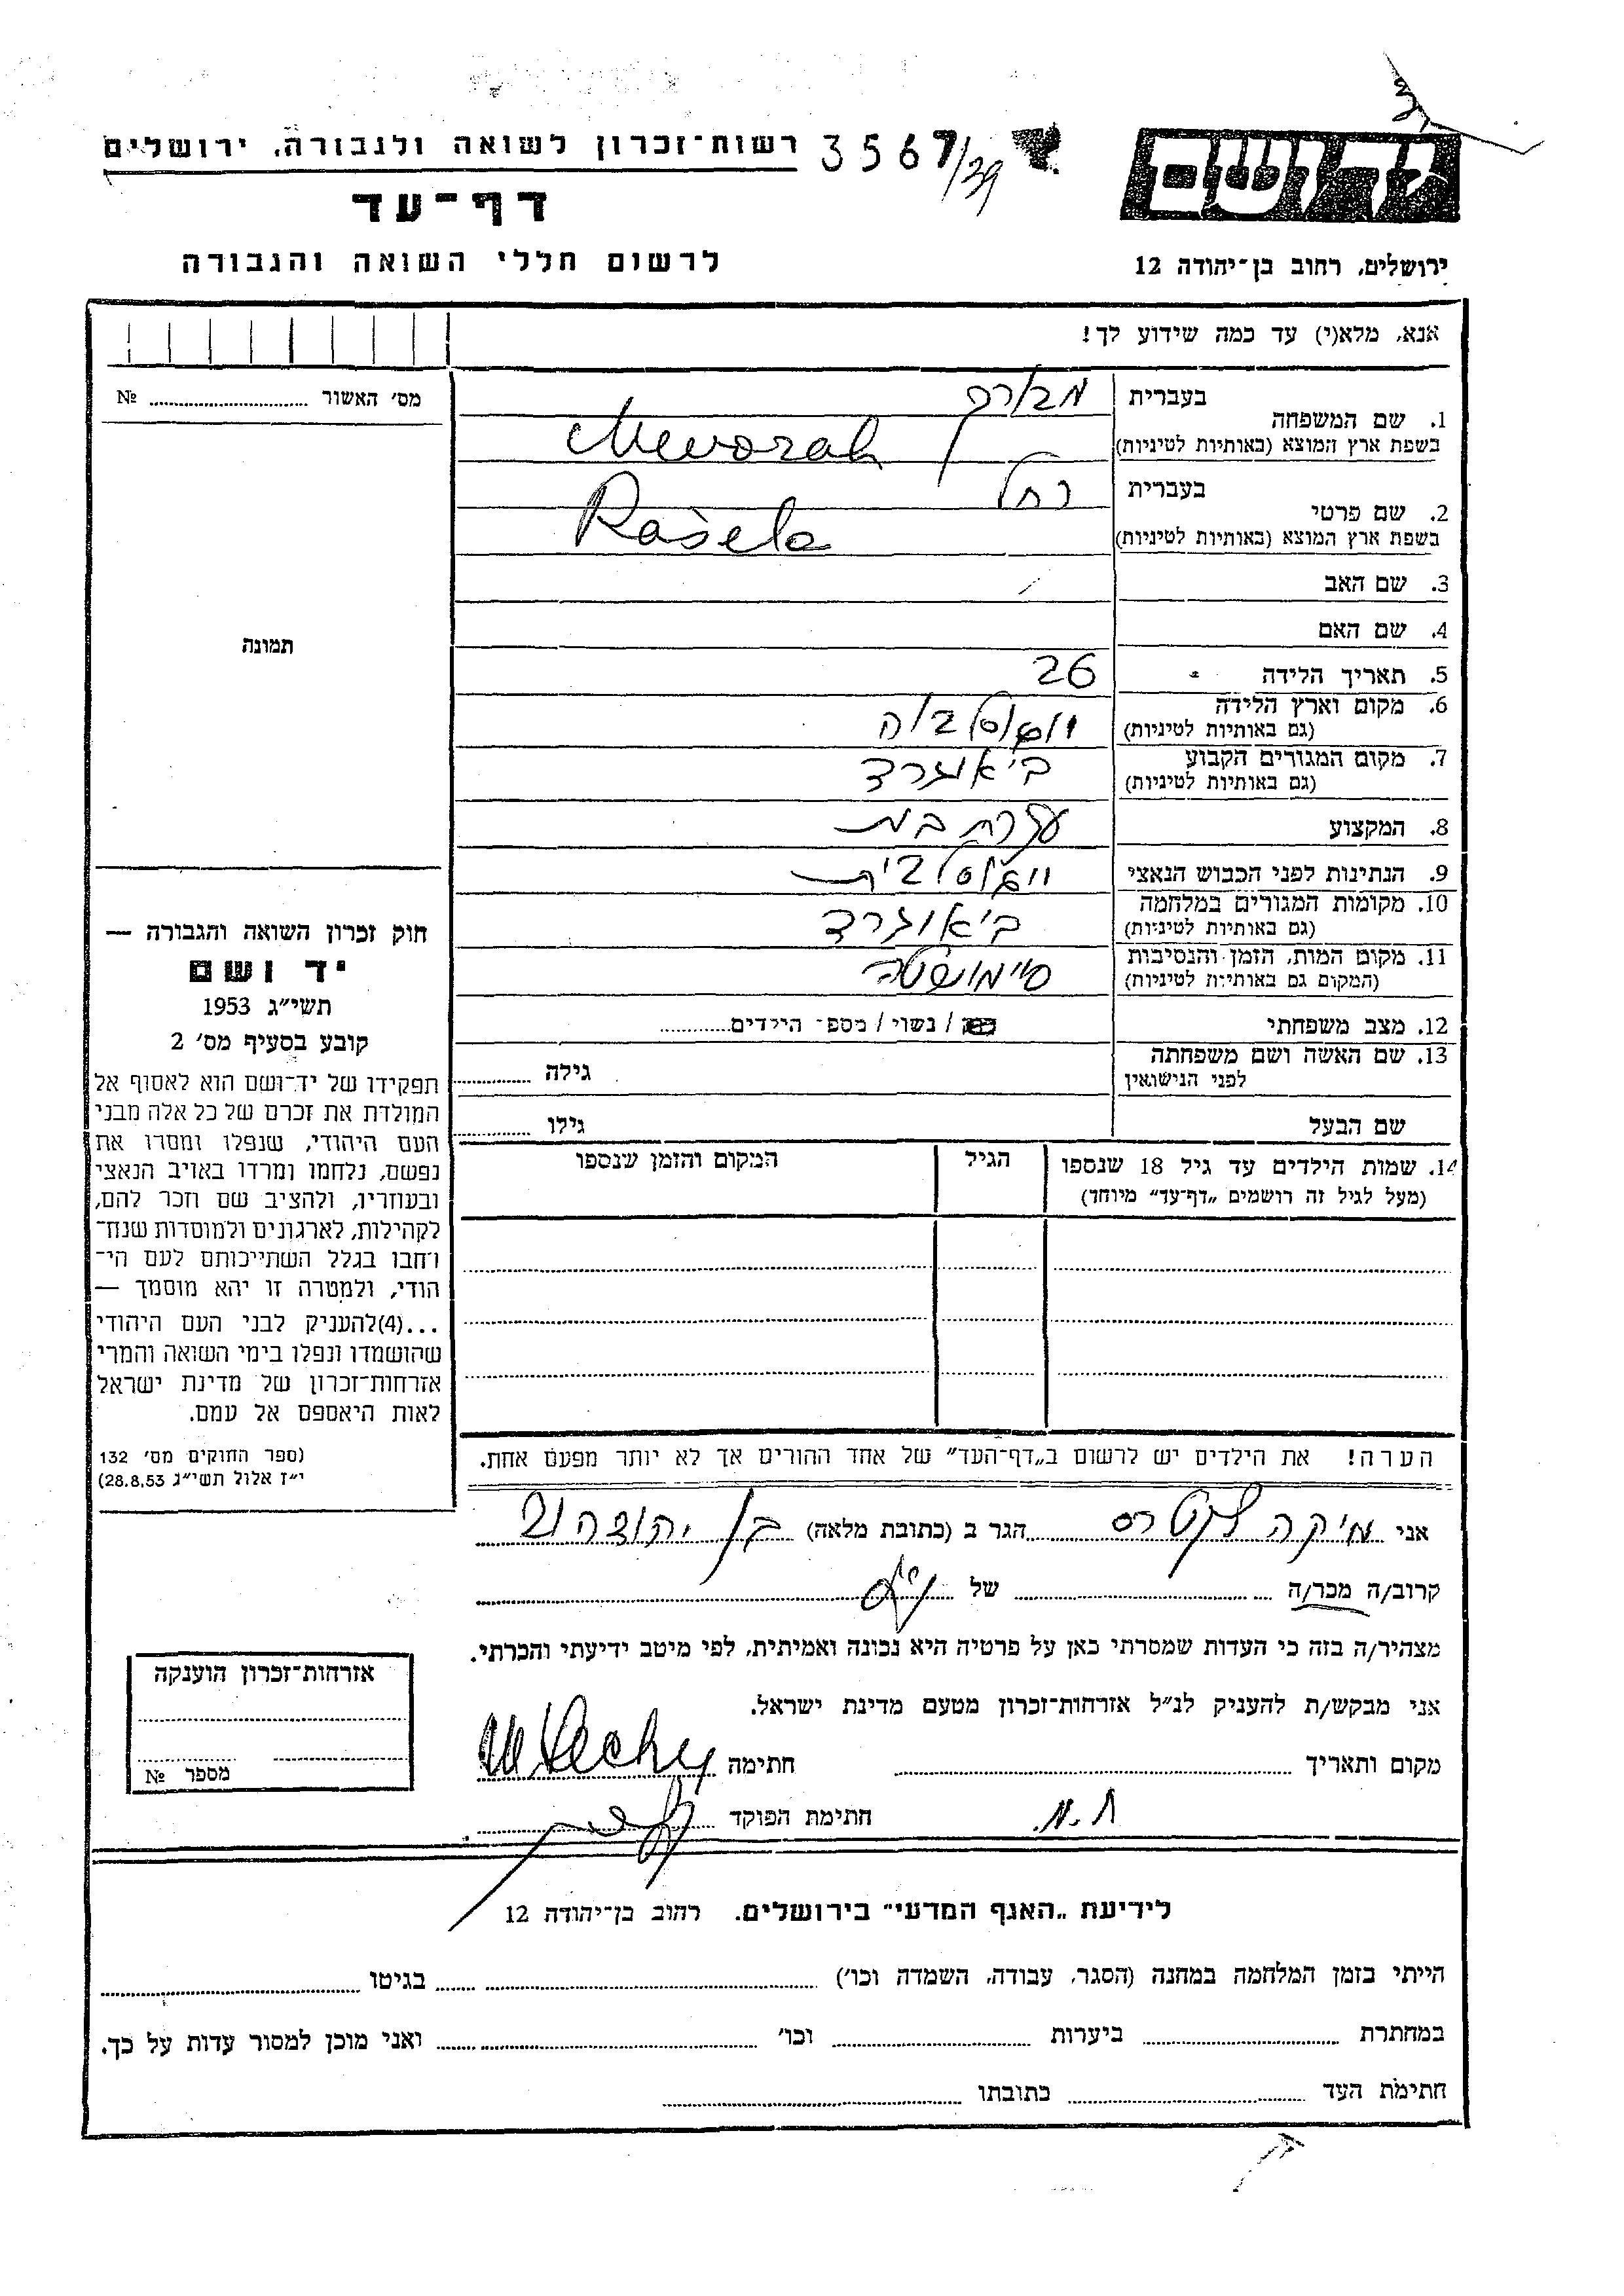 יד ושם
3567/39
רשות־זכרון לשואה ולגבורה, ירושלים
דף־עד
לרשום חללי השואה והגבורה
ירושלים, רחוב בן־יהודה 12
אנא, מלא(י) עד כמה שידוע לך!
מס׳ האשור № 
תמונה
חוק זכרון השואה והגבורה —
יד ושם
תשי״ג 1953
קובע בסעיף מס׳ 2
תפקידו של יד־ושם הוא לאסוף אל
המולדת את זכרם של כל אלה מבני
העם היהודי, שנפלו ומסרו את
נפשם, נלחמו ומרדו באויב הנאצי
ובעוזריו, ולהציב שם וזכר להם,
לקהילות, לארגונים ולמוסדות שנח־
רחבו בגלל השתייכותם לעם הי־
הודי, ולמטרה זו יהא מוסמך —
...(4)להעניק לבני העם היהודי
שהושמדו ונפלו בימי השואה והמרי
אזרחות־זכרון של מדינת ישראל
לאות היאספם אל עמם.
(ספר החוקים מס׳ 132
י״ז אלול תשי״ג 28.8.53)
1. שם המשפחה בעברית מבורך
בשפת ארץ המוצא (באותיות לטיניות) Mevorah
2. שם פרטי בעברית רחל
בשפת ארץ המוצא (באותיות לטיניות) Rašela
3. שם האב
4. שם האם
5. תאריך הלידה 26
6. מקום וארץ הלידה יוגוסלביה
(גם באותיות לטיניות)
7. מקום המגורים הקבוע ביאוגרד
(גם באותיות לטיניות)
8. המקצוע עקרת בית
9. הנתינות לפני הכבוש הנאצי יוגוסלבית
10. מקומות המגורים במלחמה ביאוגרד
(גם באותיות לטיניות)
11. מקום המות, הזמן והנסיבות
(המקום גם באותיות לטיניות)
12. מצב משפחתי / נשוי / מספ־ הילדים
13. שם האשה ושם משפחתה גילה
לפני הנישואין
שם הבעל גילו
14. שמות הילדים עד גיל 18 שנספו הגיל המקום והזמן שנספו
(מעל לגיל זה רושמים „דף־עד״ מיוחד)
הערה! את הילדים יש לרשום ב„דף־העד״ של אחד ההורים אך לא יותר מפעם אחת.
אני מיקה הגר ב (כתובת מלאה) בן יהודה
קרוב/ה מכר/ה של
מצהיר/ה בזה כי העדות שמסרתי כאן על פרטיה היא נכונה ואמיתית, לפי מיטב ידיעתי והכרתי.
אני מבקש/ת להעניק לנ״ל אזרחות־זכרון מטעם מדינת ישראל.
מקום ותאריך חתימה
ת.א. חתימת הפוקד
אזרחות־זכרון הוענקה
מספר №
לידיעת „האגף המדעי״ בירושלים. רחוב בן־יהודה 12
הייתי בזמן המלחמה במחנה (הסגר, עבודה, השמדה וכו׳) בגיטו
במחתרת ביערות וכו׳ ואני מוכן למסור עדות על כך.
חתימת העד כתובתו